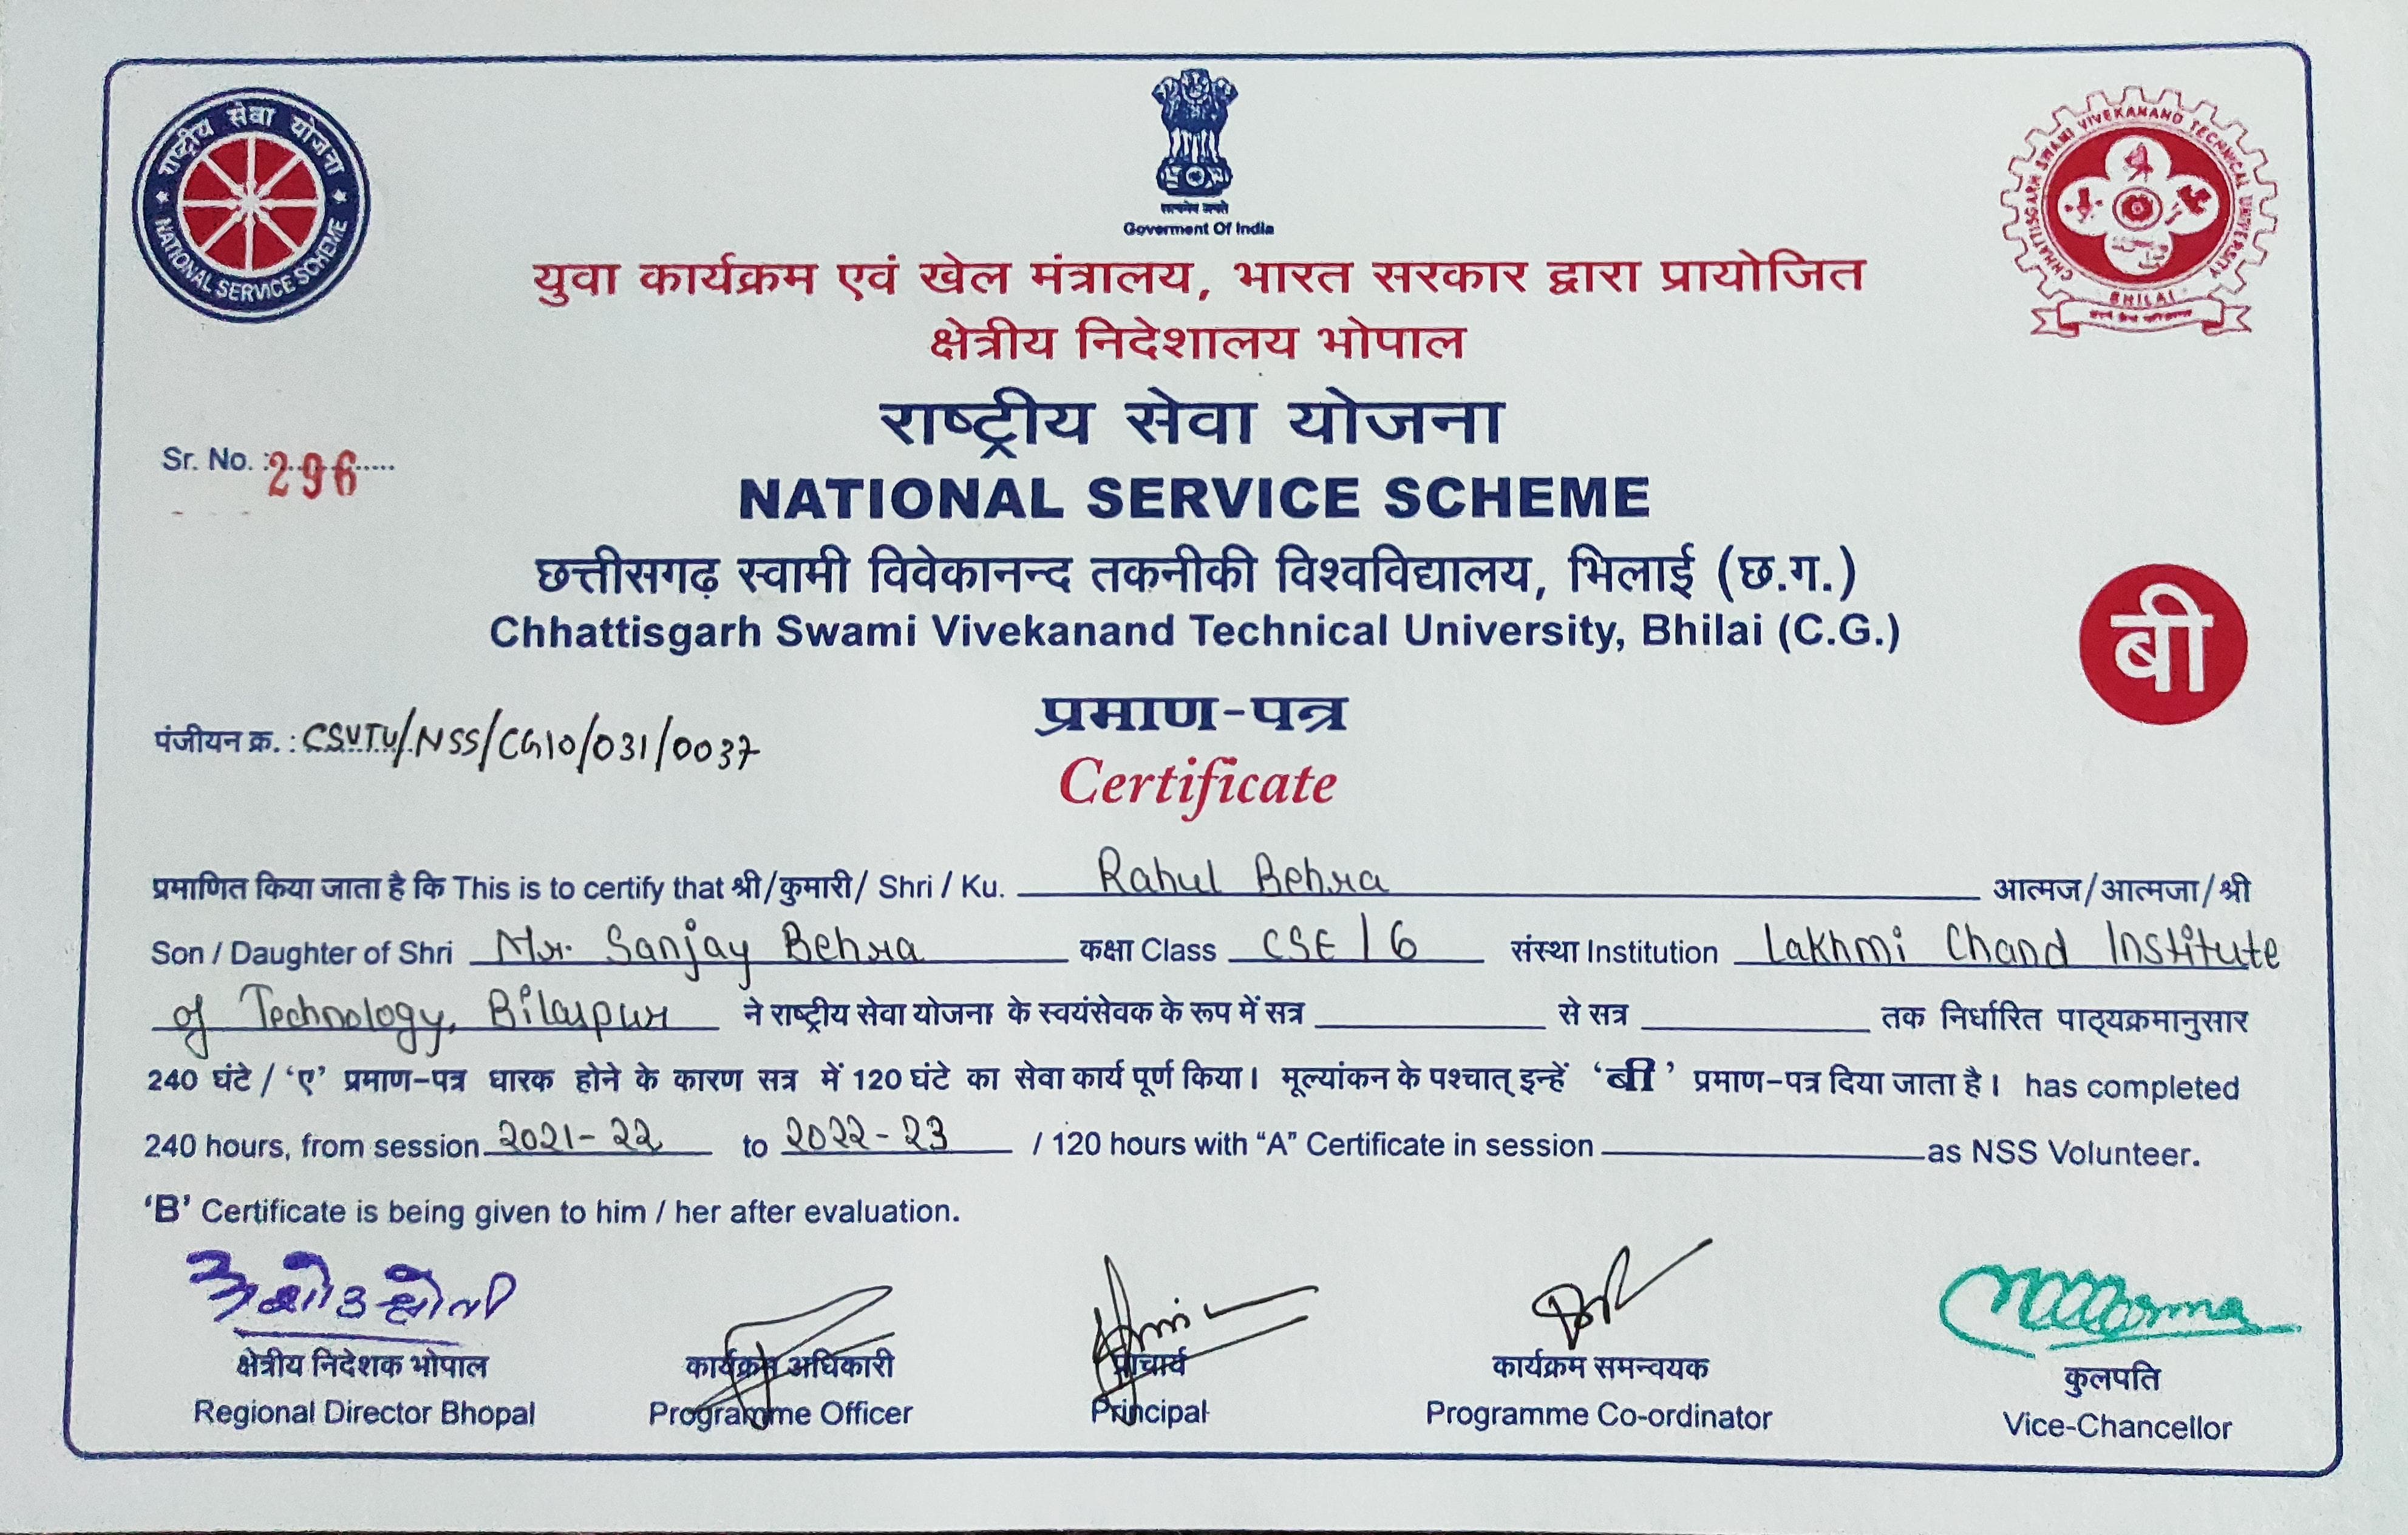 राष्ट्रीय सेवा योजना
NATIONAL SERVICE SCHEME
सत्यमेव जयते
Goverment Of India
CHHATTISGARH SWAMI VIVEKANAND TECHNICAL UNIVERSITY
BHILAI
युवा कार्यक्रम एवं खेल मंत्रालय, भारत सरकार द्वारा प्रायोजित
क्षेत्रीय निदेशालय भोपाल
राष्ट्रीय सेवा योजना
Sr. No. : 296
NATIONAL SERVICE SCHEME
छत्तीसगढ़ स्वामी विवेकानन्द तकनीकी विश्वविद्यालय, भिलाई (छ.ग.)
Chhattisgarh Swami Vivekanand Technical University, Bhilai (C.G.)
बी
प्रमाण-पत्र
पंजीयन क्र. : CSVTU/NSS/CG10/031/0037
Certificate
प्रमाणित किया जाता है कि This is to certify that श्री/कुमारी/ Shri / Ku. Rahul Behra आत्मज/आत्मजा/श्री
Son / Daughter of Shri Mr. Sanjay Behra कक्षा Class CSE / 6 संस्था Institution Lakhmi Chand Institute
of Technology, Bilaspur ने राष्ट्रीय सेवा योजना के स्वयंसेवक के रूप में सत्र से सत्र तक निर्धारित पाठ्यक्रमानुसार
240 घंटे / ‘ए’ प्रमाण-पत्र धारक होने के कारण सत्र में 120 घंटे का सेवा कार्य पूर्ण किया। मूल्यांकन के पश्चात् इन्हें ‘बी’ प्रमाण-पत्र दिया जाता है। has completed
240 hours, from session 2021-22 to 2022-23 / 120 hours with “A” Certificate in session as NSS Volunteer.
‘B’ Certificate is being given to him / her after evaluation.
क्षेत्रीय निदेशक भोपाल कार्यक्रम अधिकारी प्राचार्य कार्यक्रम समन्वयक कुलपति
Regional Director Bhopal Programme Officer Principal Programme Co-ordinator Vice-Chancellor